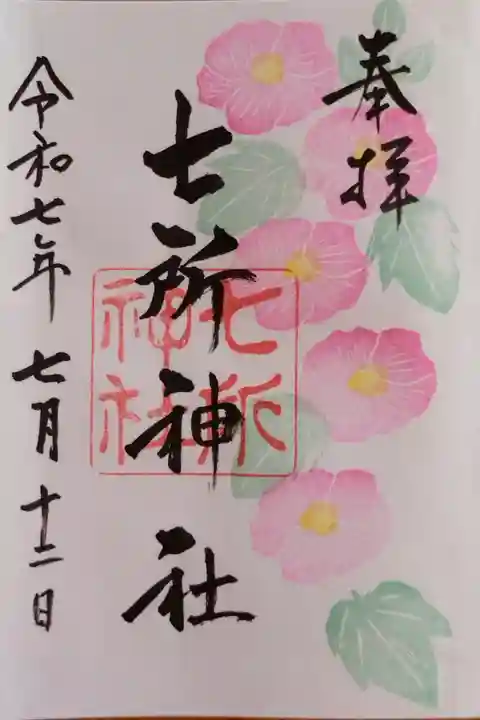 奉拝
七所神社
七所神社
令和七年七月十二日